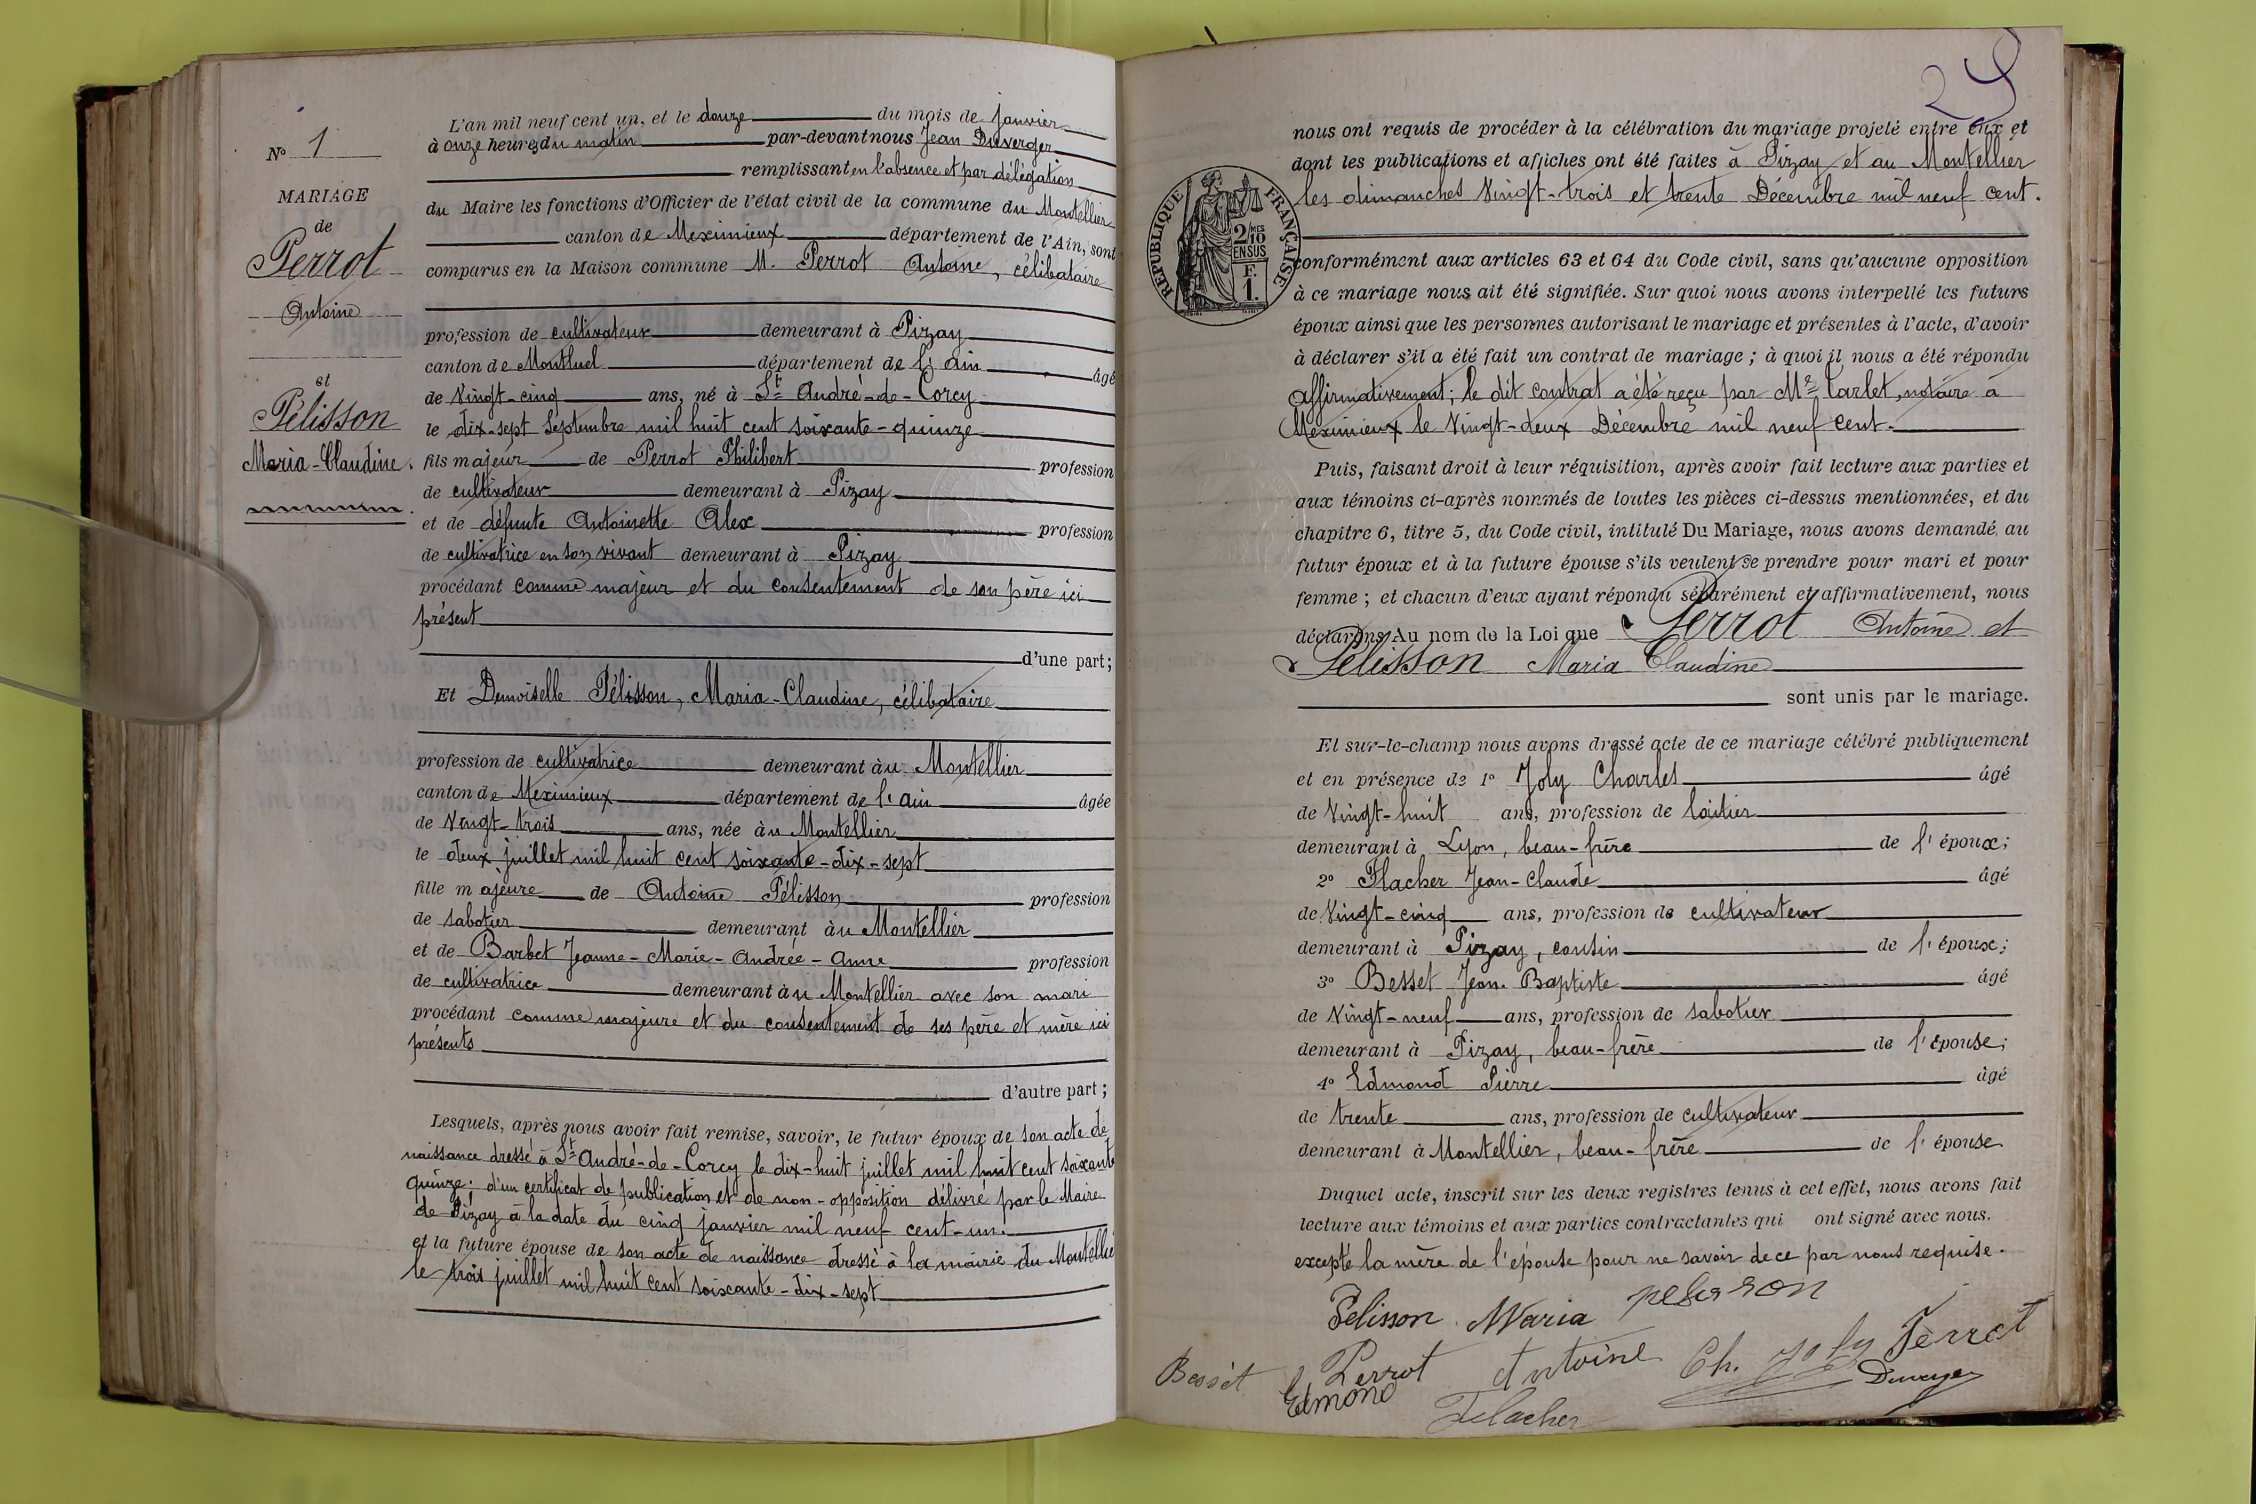 N° 1
MARIAGE
de
Perrot
Antoine
et
Pélisson
Maria-Claudine.
L'an mil neuf cent un, et le douze du mois de janvier
à onze heures du matin par-devant nous Jean Duverger
remplissant en l'absence et par délégation
du Maire les fonctions d'Officier de l'état civil de la commune du Montellier
canton de Meximieux département de l'Ain, sont
comparus en la Maison commune M. Perrot Antoine, célibataire
profession de cultivateur demeurant à Pizay
canton de Montluel département de l'ain âgé
de Vingt-cinq ans, né à St André-de-Corcy
le dix-sept Septembre mil huit cent soixante-quinze
fils majeur de Perrot Philibert profession
de cultivateur demeurant à Pizay
et de défunte Antoinette Alex profession
de cultivatrice en son vivant demeurant à Pizay
procédant comme majeur et du consentement de son père ici
présent
d'une part;
Et Demoiselle Pélisson, Maria-Claudine, célibataire
profession de cultivatrice demeurant àu Montellier
canton de Meximieux département de l'ain âgée
de Vingt-trois ans, née àu Montellier
le deux juillet mil huit cent soixante-dix-sept
fille majeure de Antoine Pélisson profession
de sabotier demeurant àu Montellier
et de Barbet Jeanne-Marie-Andrée-Anne profession
de cultivatrice demeurant àu Montellier avec son mari
procédant comme majeure et du consentement de ses père et mère ici
présents
d'autre part;
Lesquels, après nous avoir fait remise, savoir, le futur époux de son acte de
naissance dressé à St André-de-Corcy le dix-huit juillet mil huit cent soixante
quinze; d'un certificat de publication et de non-opposition délivré par le Maire
de Pizay à la date du cinq janvier mil neuf cent-un.
et la future épouse de son acte de naissance dressé à la mairie du Montellier
le trois juillet mil huit cent soixante-dix-sept
29
nous ont requis de procéder à la célébration du mariage projeté entre eux et
dont les publications et affiches ont été faites à Pizay et au Montellier
les dimanches Vingt-trois et trente Décembre mil neuf cent.
RÉPUBLIQUE FRANÇAISE
2/10 MES
EN SUS
F.
1.
conformément aux articles 63 et 64 du Code civil, sans qu'aucune opposition
à ce mariage nous ait été signifiée. Sur quoi nous avons interpellé les futurs
époux ainsi que les personnes autorisant le mariage et présentes à l'acte, d'avoir
à déclarer s'il a été fait un contrat de mariage; à quoi il nous a été répondu
affirmativement; le dit contrat a été reçu par Me Carlet, notaire à
Meximieux le Vingt-deux Décembre mil neuf cent.
Puis, faisant droit à leur réquisition, après avoir fait lecture aux parties et
aux témoins ci-après nommés de toutes les pièces ci-dessus mentionnées, et du
chapitre 6, titre 5, du Code civil, intitulé Du Mariage, nous avons demandé au
futur époux et à la future épouse s'ils veulent se prendre pour mari et pour
femme; et chacun d'eux ayant répondu séparément et affirmativement, nous
déclarons Au nom de la Loi que Perrot Antoine et
Pélisson Maria Claudine
sont unis par le mariage.
Et sur-le-champ nous avons dressé acte de ce mariage célébré publiquement
et en présence de 1° Joly Charles âgé
de Vingt-huit ans, profession de laitier
demeurant à Lyon, beau-frère de l'époux;
2° Flacher Jean-Claude âgé
de Vingt-cinq ans, profession de cultivateur
demeurant à Pizay, cousin de l'époux;
3° Besset Jean-Baptiste âgé
de Vingt-neuf ans, profession de sabotier
demeurant à Pizay, beau-frère de l'épouse;
4° Edmond Pierre âgé
de trente ans, profession de cultivateur
demeurant à Montellier, beau-frère de l'épouse
Duquel acte, inscrit sur les deux registres tenus à cet effet, nous avons fait
lecture aux témoins et aux parties contractantes qui ont signé avec nous.
excepté la mère de l'épouse pour ne savoir de ce par nous requise.
Pelisson Maria pelisson
Perrot Antoine Ch. Joly Perrot
Besset Edmond Flacher Duverger